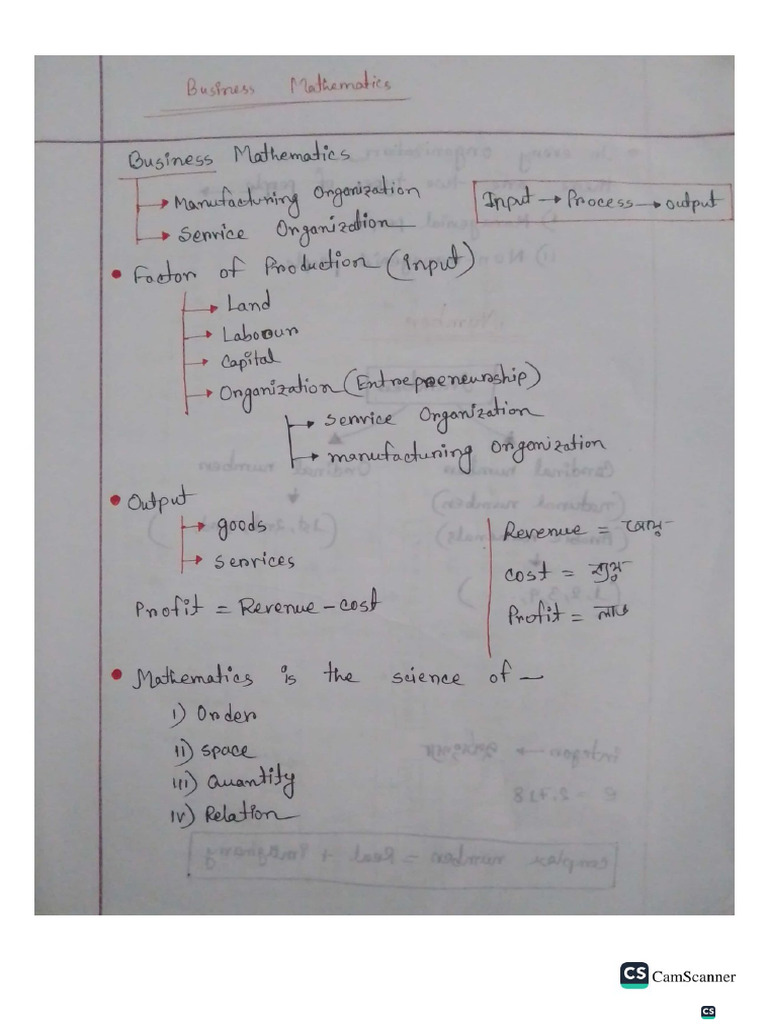 Business Mathematics
Business Mathematics
→ Manufacturing Organization
→ Service Organization
Input → Process → output
• Factor of Production (Input)
→ Land
→ Labour
→ Capital
→ Organization (Entrepreneurship)
→ Service Organization
→ manufacturing organization
• Output
→ goods
→ Services
Profit = Revenue - cost
Revenue = আয়
Cost =
Profit = লাভ
• Mathematics is the science of —
i) Order
ii) Space
iii) Quantity
iv) Relation
CS CamScanner
CS